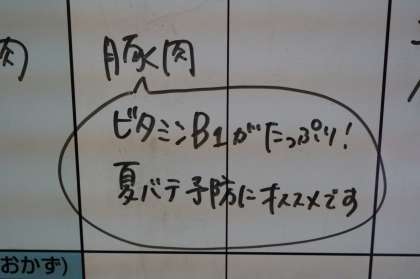 肉
豚肉
ビタミンB1がたっぷり!
夏バテ予防にオススメです
おかず)